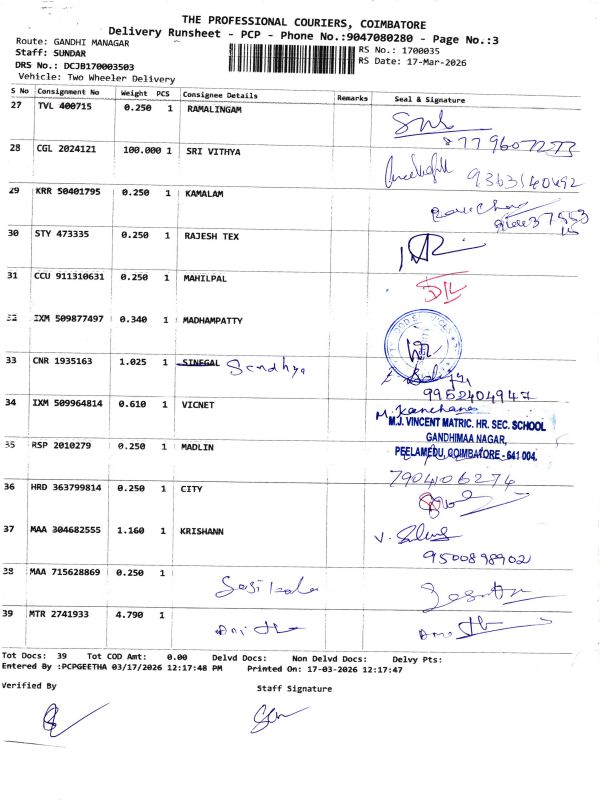 THE PROFESSIONAL COURIERS, COIMBATORE
Delivery Runsheet - PCP - Phone No.:9047080280 - Page No.:3
Route: GANDHI MANAGAR
RS No.: 1700035
Staff: SUNDAR
RS Date: 17-Mar-2026
DRS No.: DCJB170003503
Vehicle: Two Wheeler Delivery
S No Consignment No Weight PCS Consignee Details Remarks Seal & Signature
27 TVL 400715 0.250 1 RAMALINGAM
28 CGL 2024121 100.000 1 SRI VITHYA
9363140492
29 KRR 50401795 0.250 1 KAMALAM
30 STY 473335 0.250 1 RAJESH TEX
31 CCU 911310631 0.250 1 MAHILPAL
32 IXM 509877497 0.340 1 MADHAMPATTY
33 CNR 1935163 1.025 1 SINEGAL Sendhya
9952404947
34 IXM 509964814 0.610 1 VICNET
M. Kanchana
M.J. VINCENT MATRIC. HR. SEC. SCHOOL
GANDHIMAA NAGAR,
PEELAMEDU, COIMBATORE - 641 004.
35 RSP 2010279 0.250 1 MADLIN
7904106274
36 HRD 363799814 0.250 1 CITY
37 MAA 304682555 1.160 1 KRISHANN
9500898902
38 MAA 715628869 0.250 1 Sasikala
39 MTR 2741933 4.790 1
Tot Docs: 39 Tot COD Amt: 0.00 Delvd Docs: Non Delvd Docs: Delvy Pts:
Entered By :PCPGEETHA 03/17/2026 12:17:48 PM Printed On: 17-03-2026 12:17:47
Verified By
Staff Signature